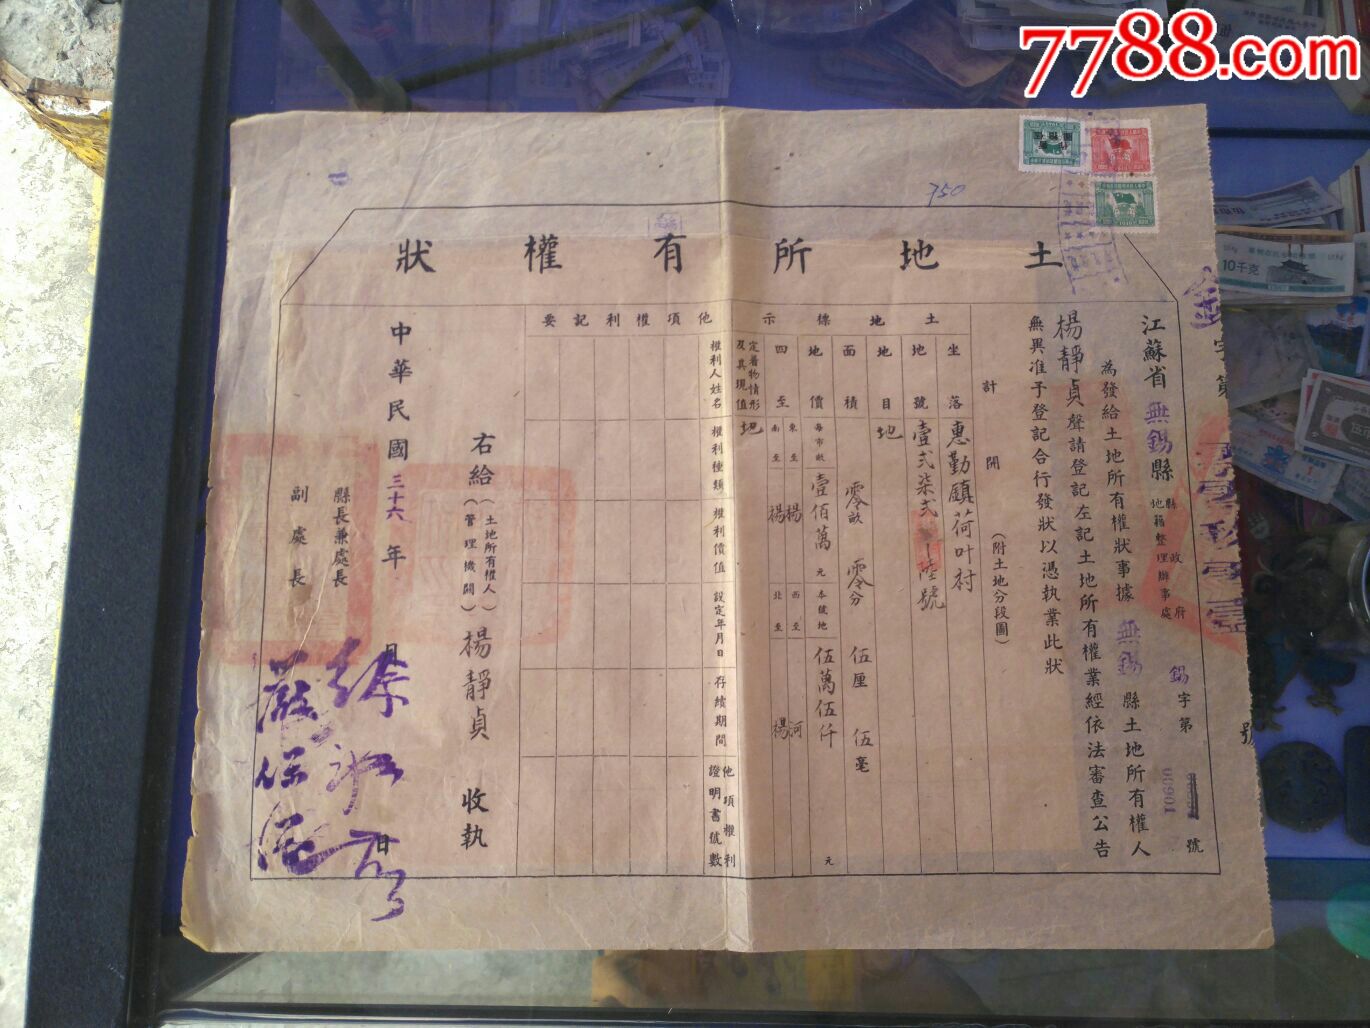 7788.com
750
土地所有權狀
江蘇省無錫縣縣政府
地籍整理辦事處
錫字第
10990
號
為發給土地所有權狀事據無錫縣土地所有權人
楊靜貞聲請登記左記土地所有權業經依法審查公告
無異准予登記合行發狀以憑執業此狀
計開
(附土地分段圖)
土地標示
坐落
惠勤鎮荷叶村
地號
壹弍柒弍
陸號
地目
地
面積
零畝零分伍厘伍毫
地價
每市畝
壹佰萬元
本號地
伍萬伍仟
元
四至
東至
楊
西至
河
南至
楊
北至
楊
定着物情形及其現值
地
他項權利記要
權利人姓名
權利種類
權利價值
設定年月日
存續期間
他項權利證明書號數
右給(土地所有權人)(管理機關)楊靜貞收執
中華民國三十六年月日
縣長兼處長
徐
副處長
嚴
字第
號
10千克